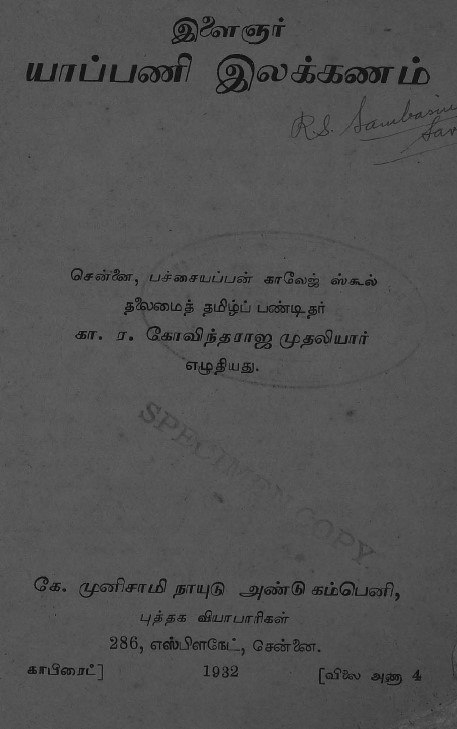 இளைஞர்
யாப்பணி இலக்கணம்
R. S.
சென்னை, பச்சையப்பன் காலேஜ் ஸ்கூல்
தலைமைத் தமிழ்ப் பண்டிதர்
கா. ர. கோவிந்தராஜ முதலியார்
எழுதியது.
SPECIMEN COPY
கே. முனிசாமி நாயுடு அண்டு கம்பெனி,
புத்தக வியாபாரிகள்
286, எஸ்பிளநேட், சென்னை.
காபிரைட்] 1932 [விலை அணா 4